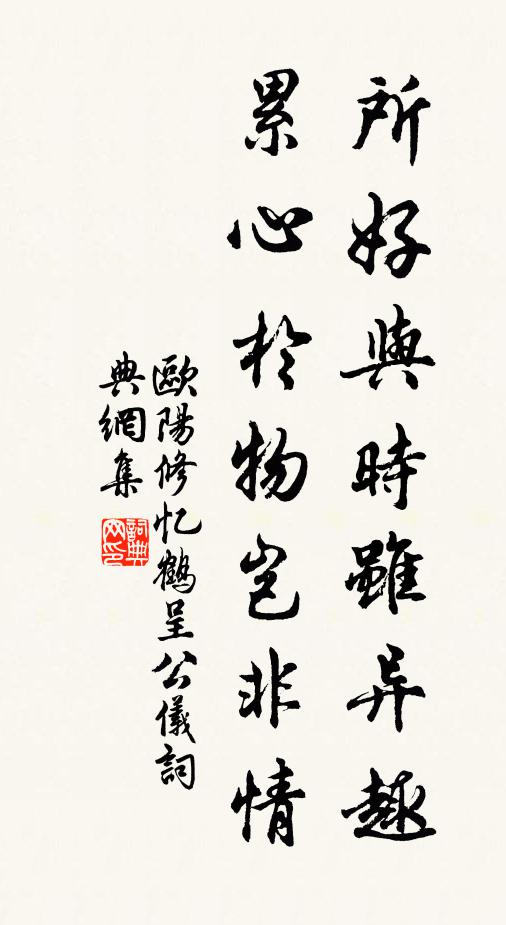 所好與時雖异趣
累心於物岂非情
歐陽修忆鶴呈公儀詞
典網集
詞典
网印